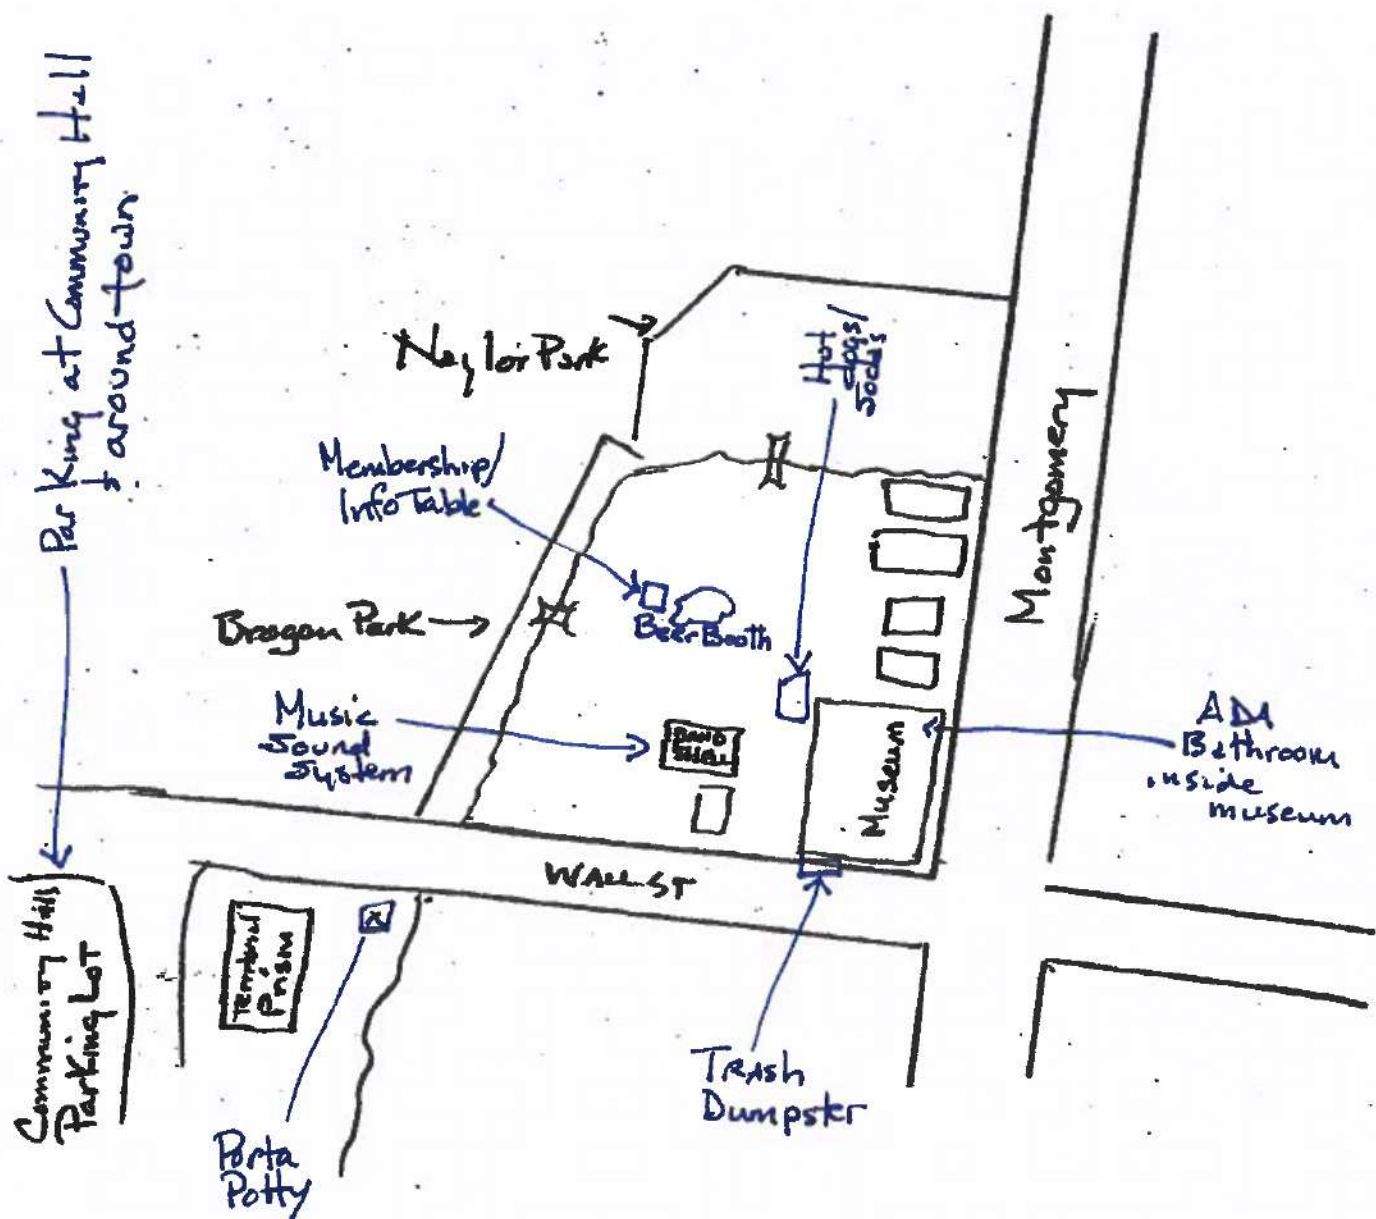 Parking at Community Hall
& around town
Naylor Park
Hot
dogs/
Sodas
Membership/
Info Table
Montgomery
Beer Booth
Brogan Park
Music
Sound
System
BAND
SHELL
Museum
ADA
Bathroom
inside
museum
WALL ST
Community Hall
Parking Lot
Territorial
Prison
Trash
Dumpster
Porta
Potty